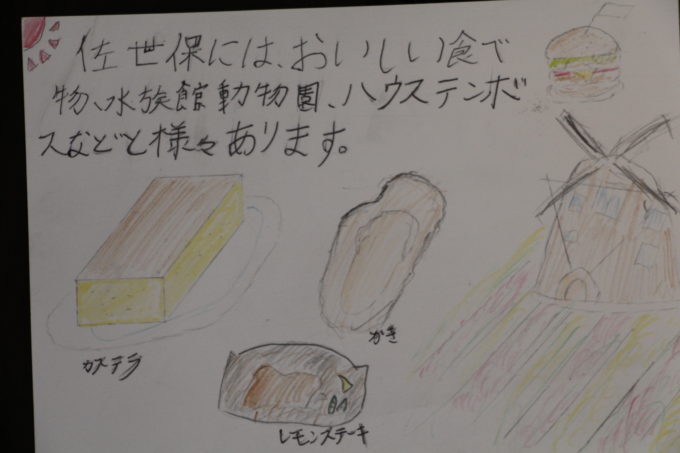 佐世保には、おいしい食で
物、水族館動物園、ハウステンボ
スなどと様々あります。
カステラ
かき
レモンステーキ